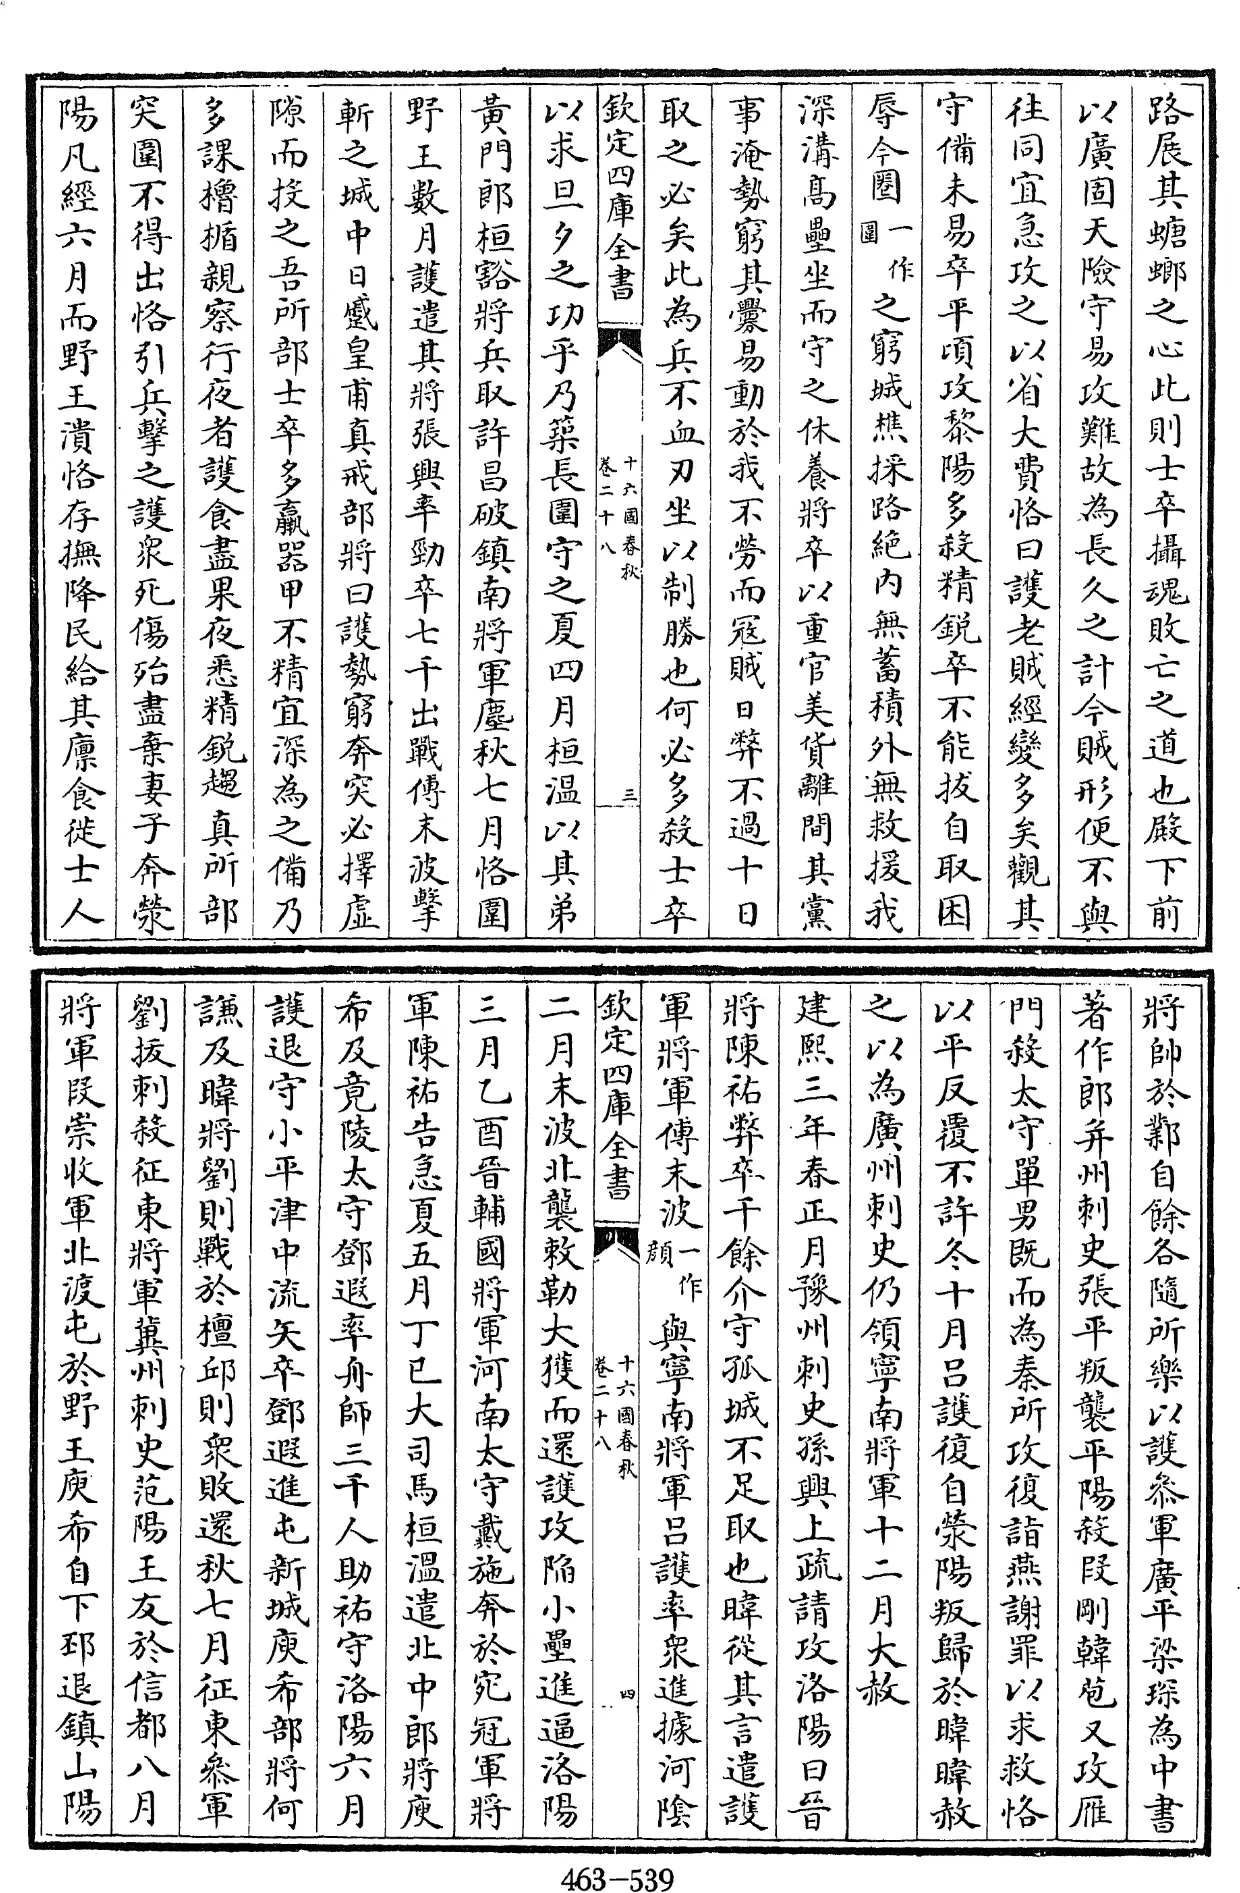 路展其螗螂之心此則士卒攝魂敗亡之道也殿下前
以廣固天險守易攻難故為長久之計今賊形便不與
往同宜急攻之以省大費恪曰護老賊經變多矣觀其
守備未易卒平頃攻黎陽多殺精銳卒不能拔自取困
辱今圈一作圍之窮城樵採路絶内無蓄積外無救援我
深溝高壘坐而守之休養將卒以重官美貨離間其黨
事淹勢窮其釁易動於我不勞而寇賊日弊不過十日
取之必矣此為兵不血刃坐以制勝也何必多殺士卒
欽定四庫全書 十六國春秋 卷二十八 三
以求旦夕之功乎乃築長圍守之夏四月桓温以其弟
黃門郎桓豁將兵取許昌破鎮南將軍塵秋七月恪圍
野王數月護遣其將張興率勁卒七千出戰傅末波擊
斬之城中日蹙皇甫真戒部將曰護勢窮奔突必擇虛
隙而投之吾所部士卒多羸器甲不精宜深為之備乃
多課櫓楯親察行夜者護食盡果夜悉精銳趨真所部
突圍不得出恪引兵擊之護衆死傷殆盡棄妻子奔滎
陽凡經六月而野王潰恪存撫降民給其廪食徙士人
將帥於鄴自餘各隨所樂以護叅軍廣平梁琛為中書
著作郎并州刺史張平叛襲平陽殺段剛韓苞又攻雁
門殺太守單男既而為秦所攻復詣燕謝罪以求救恪
以平反覆不許冬十月呂護復自滎陽叛歸於暐暐赦
之以為廣州刺史仍領寧南將軍十二月大赦
建熙三年春正月豫州刺史孫興上疏請攻洛陽曰晉
將陳祐弊卒千餘介守孤城不足取也暐從其言遣護
軍將軍傅末波一作顔與寧南將軍呂護率衆進據河陰
欽定四庫全書 十六國春秋 卷二十八 四
二月末波北襲敕勒大獲而還護攻陷小壘進逼洛陽
三月乙酉晉輔國將軍河南太守戴施奔於宛冠軍將
軍陳祐告急夏五月丁巳大司馬桓温遣北中郎將庾
希及竟陵太守鄧遐率舟師三千人助祐守洛陽六月
護退守小平津中流矢卒鄧遐進屯新城庾希部將何
謙及暐將劉則戰於檀邱則衆敗還秋七月征東叅軍
劉拔刺殺征東將軍冀州刺史范陽王友於信都八月
將軍段崇收軍北渡屯於野王庾希自下邳退鎮山陽
463-539